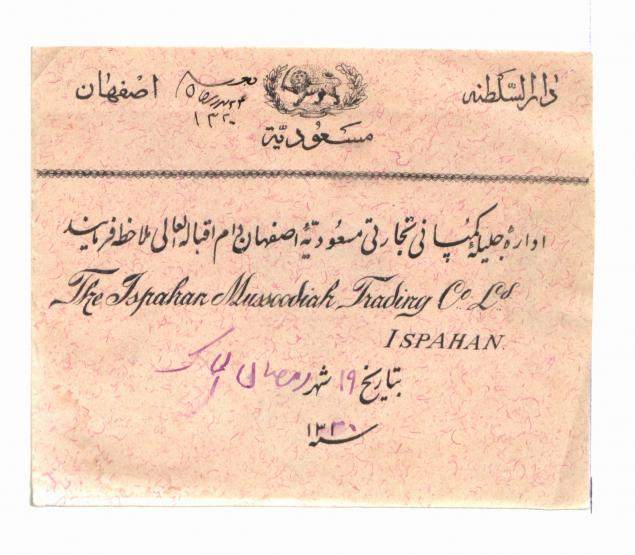 دارالسّلطنه اصفهان
مسعودیّه
ادارهٔ جلیلهٔ کمپانی تجارتی مسعودیّهٔ اصفهان دام اقباله العالی ملاحظه فرمایند
The Ispahan Mussoodiah Trading Co. Ld
ISPAHAN
بتاریخ ۱۹ شهر رمضان المبارک
سنه ۱۳۳۰